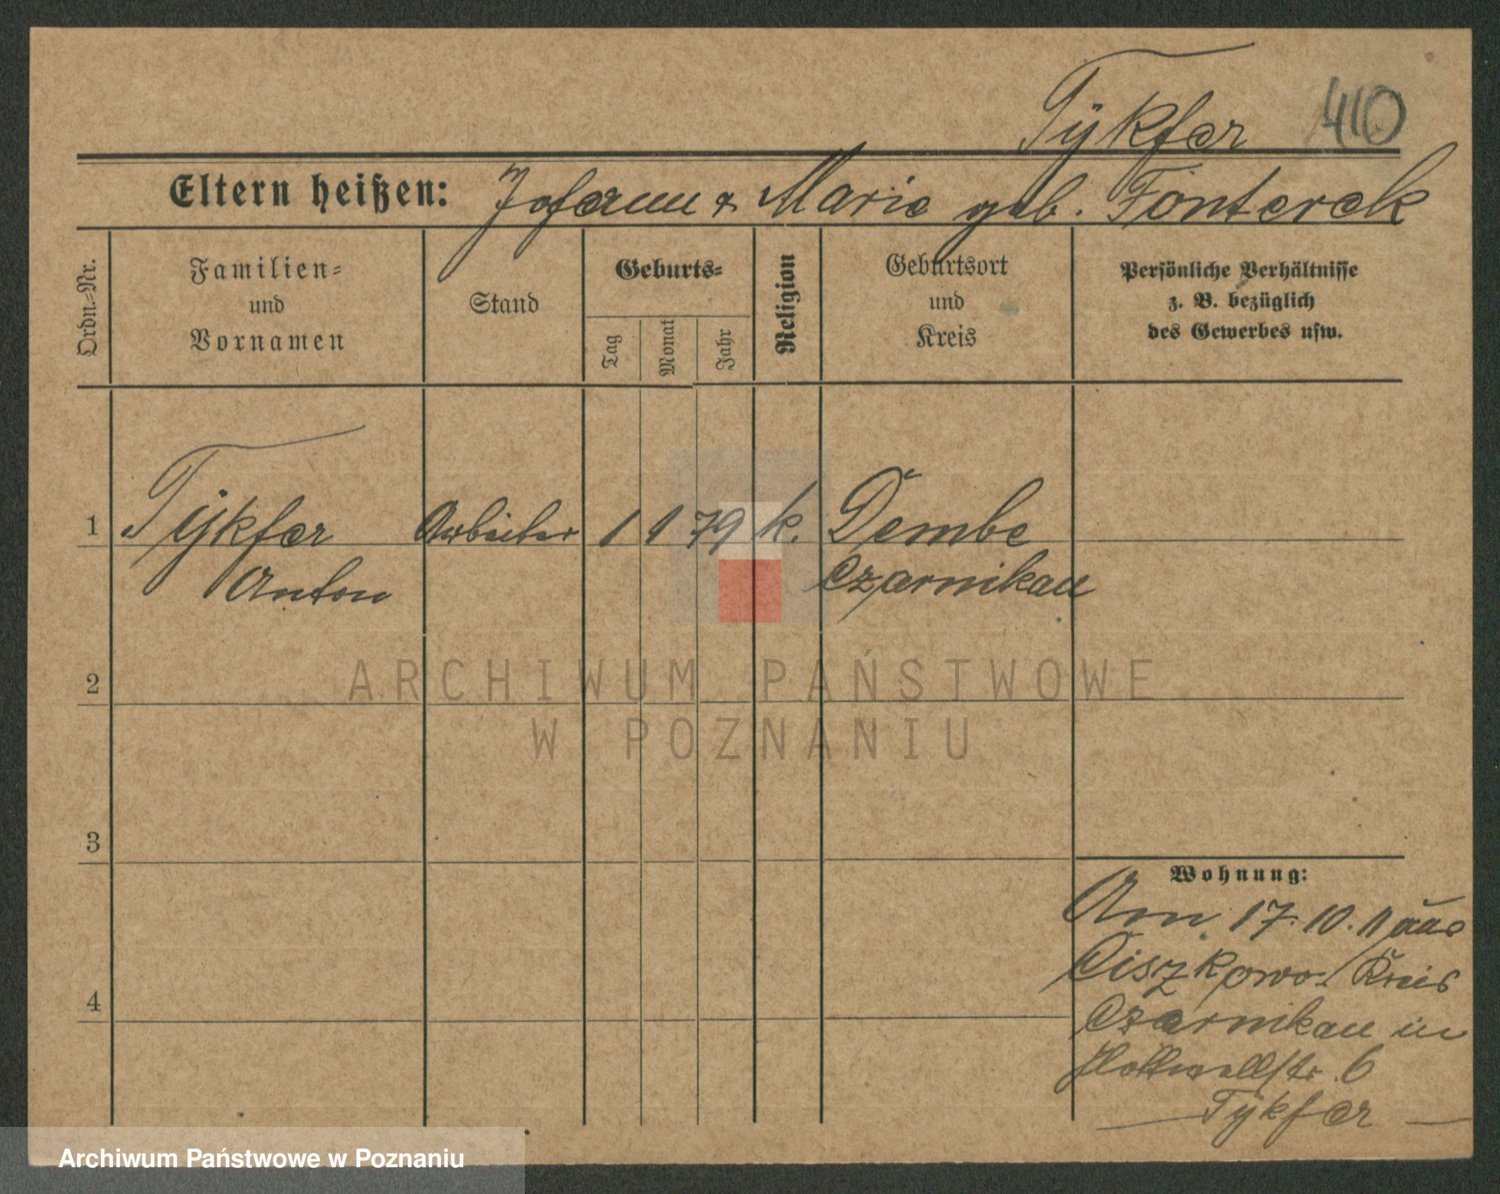 Tÿkfer 410
Eltern heißen: Johann & Marie geb. Fonterek
Ordn.=Nr.
Familien=
und
Vornamen
Stand
Geburts=
Tag
Monat
Jahr
Religion
Geburtsort
und
Kreis
Persönliche Verhältnisse
z. B. bezüglich
des Gewerbes usw.
1 Tÿkfer Arbeiter 1 1 79 k. Dembe
Anton Czarnikau
2
ARCHIWUM PAŃSTWOWE
W POZNANIU
3
Wohnung:
Am 17. 10. 11 aus
Ciszkowo Kreis
4
Czarnikau in
6
Tÿkfer
Archiwum Państwowe w Poznaniu